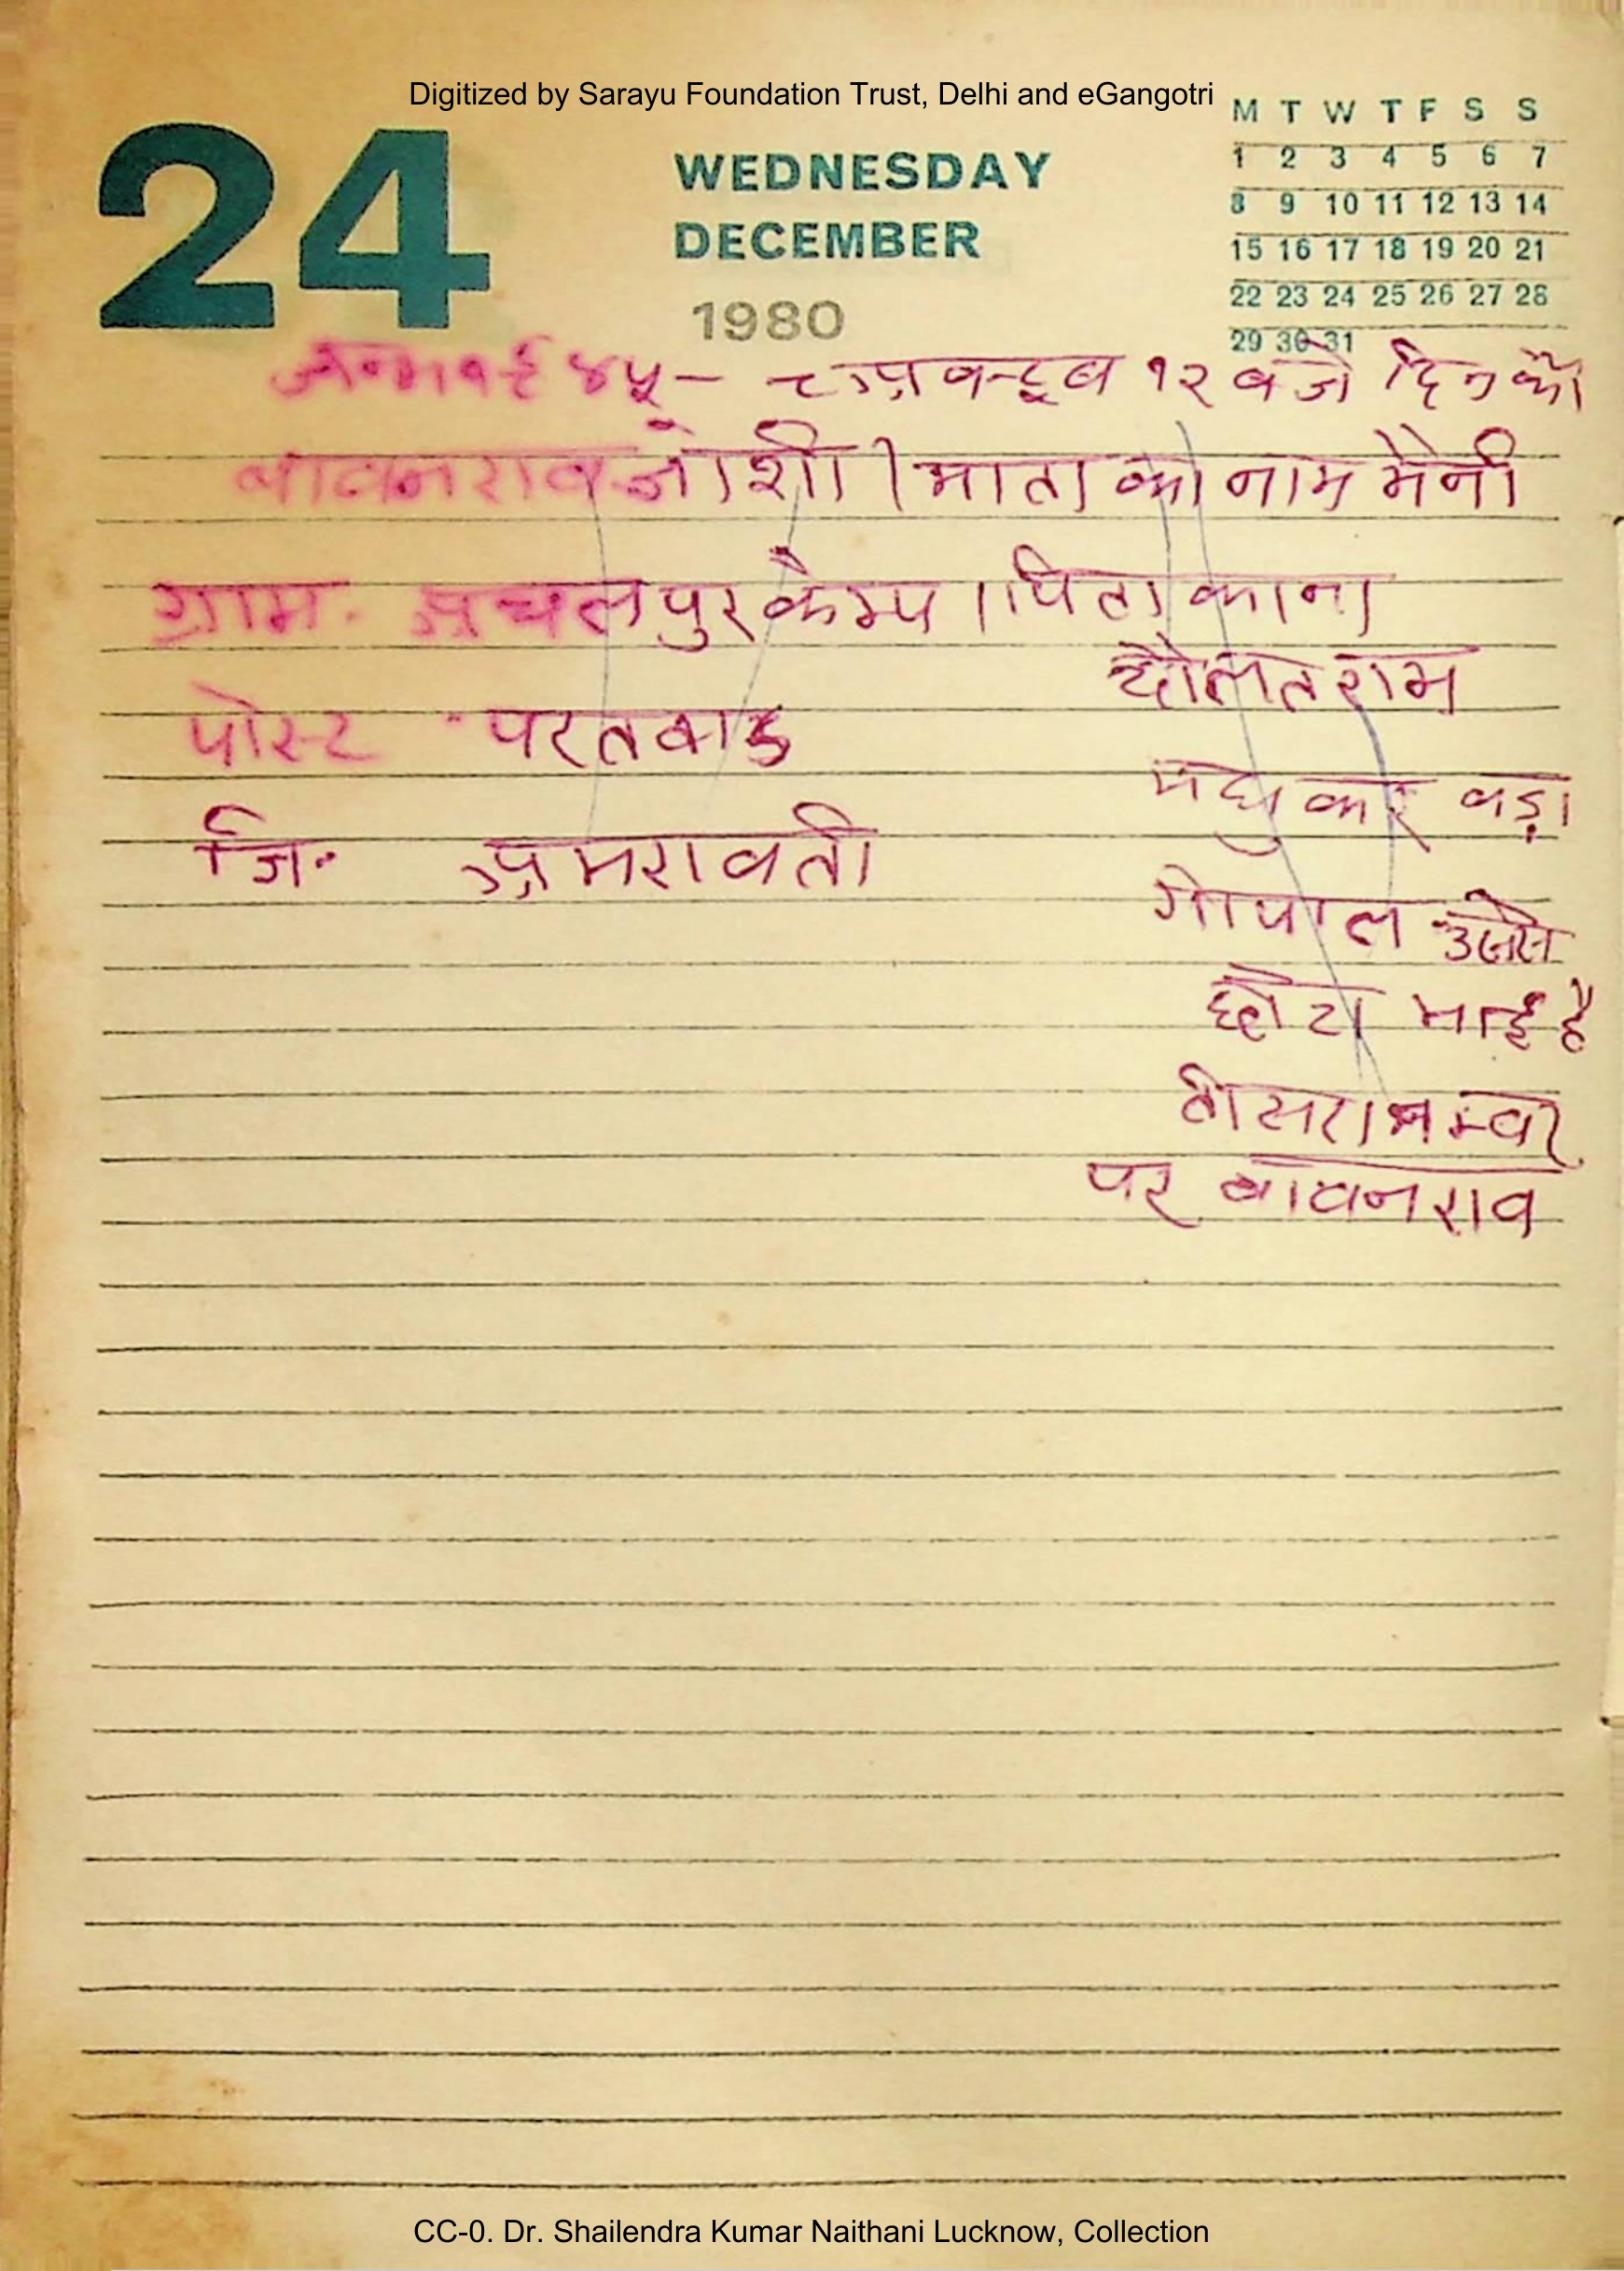 Digitized by Sarayu Foundation Trust, Delhi and eGangotri
24
WEDNESDAY
DECEMBER
1980
M T W T F S S
1 2 3 4 5 6 7
8 9 10 11 12 13 14
15 16 17 18 19 20 21
22 23 24 25 26 27 28
29 30 31
जन्म १९४५ - ८ अक्टूब १२ बजे दिन को
बावनराव जोशी । माता का नाम मैनी
ग्राम. अचलपुर कैम्प । पिता का ना
दौलतराम
पोस्ट परतवाड
मधुकर बड़ा
जि. अमरावती
गोपाल उससे
छोटा भाई है
तीसरा नम्बर
पर बावनराव
CC-0. Dr. Shailendra Kumar Naithani Lucknow, Collection